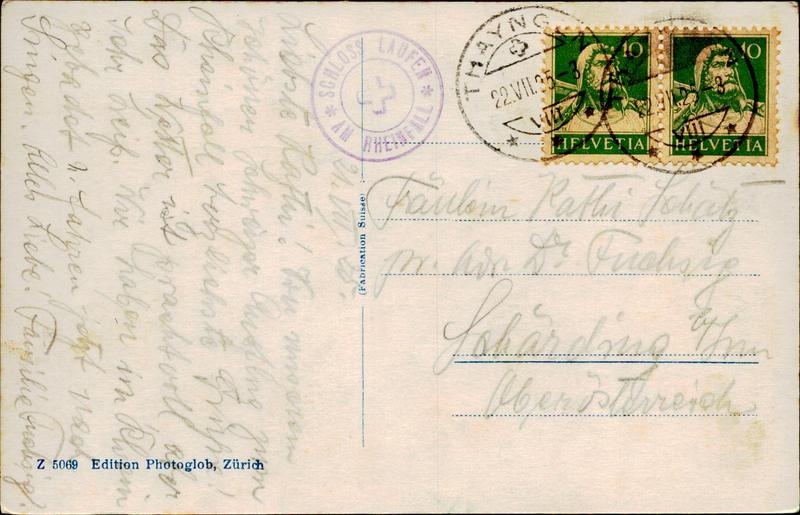 SCHLOSS LAUFEN
AM RHEINFALL
THAYNGEN
22.VII.25-3
VIII
10
10
HELVETIA
HELVETIA
(Fabrication Suisse)
Fräulein Kathi Schütz
pr. Adr. Dr. Fuchsig
Schärding a/Inn
Oberösterreich
Liebste Kathi! Von unserem
schönen Schweizer Ausflug zum
Rheinfall
Das Wetter ist prachtvoll aber
sehr heiß. Wir haben im Rhein
gebadet u. fahren jetzt nach
Singen. Alles Liebe. Familie Fuchsig.
Z 5069 Edition Photoglob, Zürich